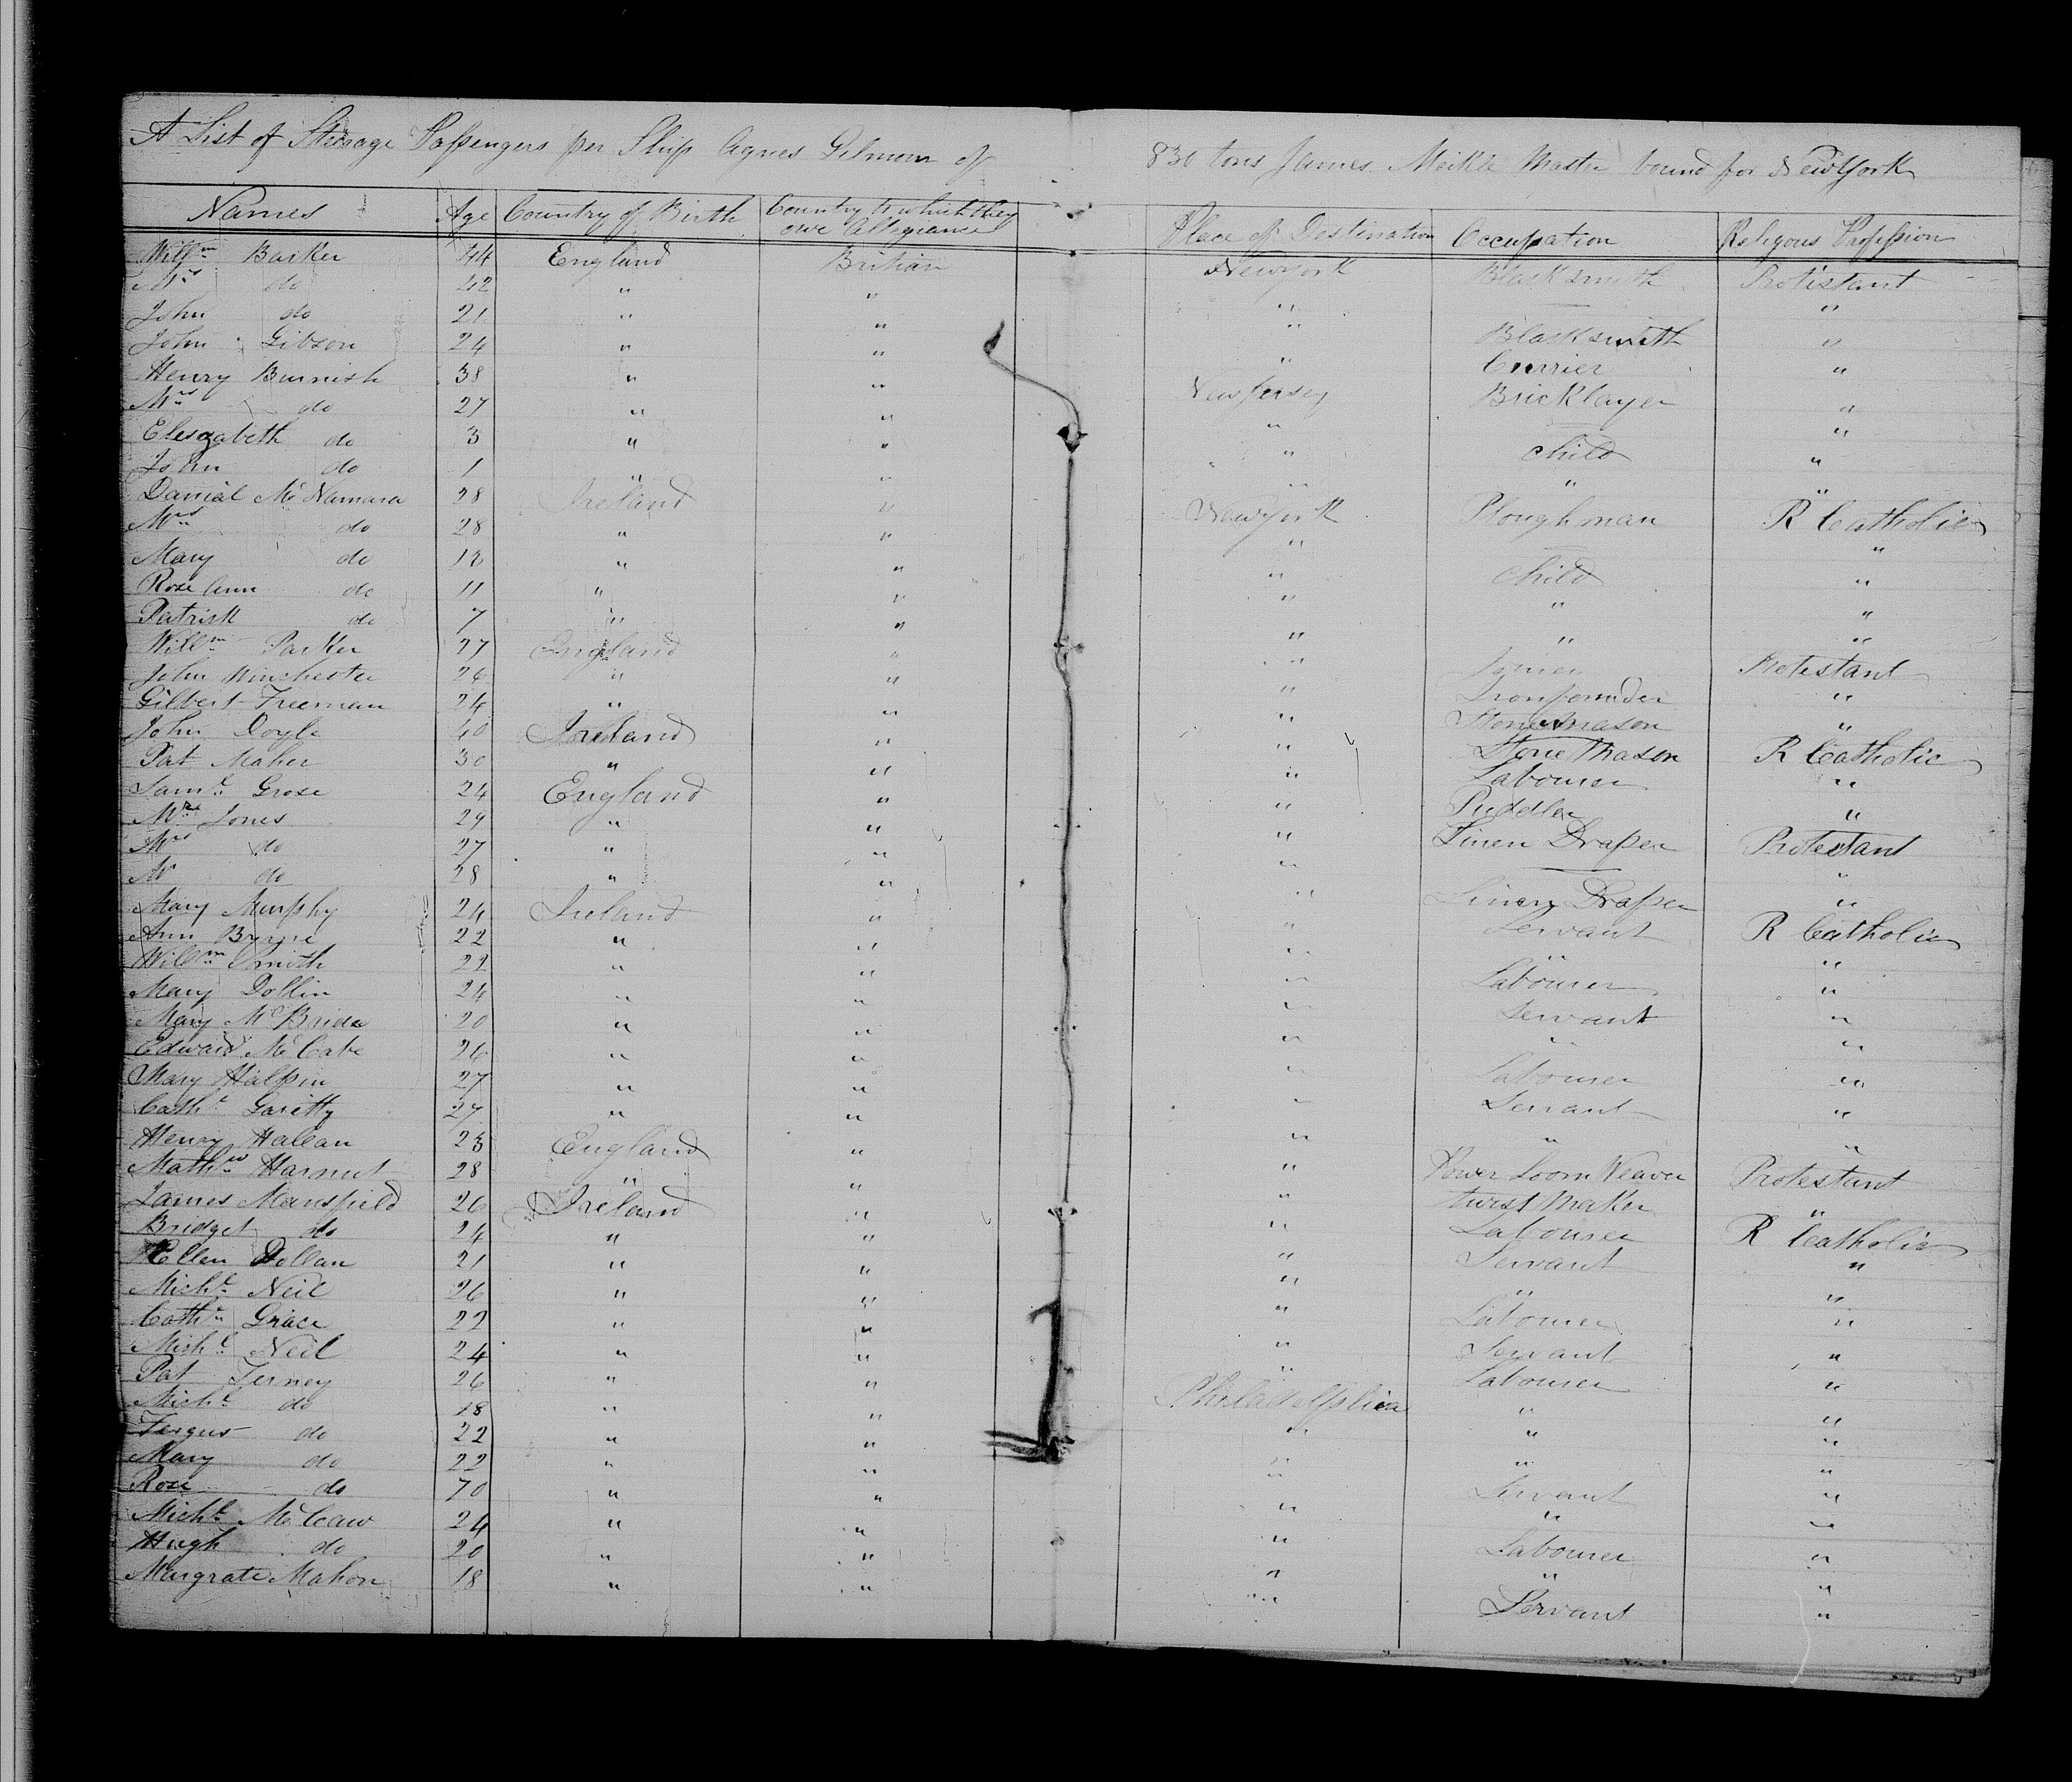 A List of Sterage Passengers per Ship Agnes Gilmour of 830 tons James Meikle Master bound for New York
Names Age Country of Birth Country to which they owe Allegiance Place of Destination Occupation Religous Profession
Willm Barker 44 England Britian New York Blacksmith Protistant
Mrs do 42 " " " — "
John do 21 " " " Blacksmith "
John Gibson 24 " " " Currier "
Henry Burnish 38 " " New Jersey Bricklayer "
Mrs do 27 " " " — "
Eleszabeth do 3 " " " child "
John do 1 " " " " "
Danial Mc Namara 28 Ireland " New York Ploughman R Catholic
Mrs do 28 " " " — "
Mary do 12 " " " child "
Rose Ann do 11 " " " " "
Patrick do 7 " " " " "
Willm Parker 27 England " " Joiner Protestant
John Winchester 26 " " " Ironfounder "
Gilbert Freeman 24 " " " Stone mason "
John Doyle 40 Ireland " " Stone Mason R Catholic
Pat Maher 30 " " " Labourer "
Saml Grose 24 England " " Puddler "
Mr Jones 29 " " " Linen Draper Protestant
Mrs do 27 " " " — "
M do 28 " " " Linen Draper "
Mary Murphy 24 Ireland " " Servant R Catholic
Ann Byrne 22 " " " " "
Willm Smith 22 " " " Labourer "
Mary Dollin 24 " " " Servant "
Mary McBride 20 " " " " "
Edward Mc Cabe 26 " " " Labourer "
Mary Halpin 27 " " " Servant "
Cathe Garitty 27 " " " " "
Henry Halean 23 England " " Power Loom Weaver Protestant
Mathw Harnut 28 " " " twist Maker "
James Mansfield 26 Ireland " " Labourer R Catholic
Bridget do 24 " " " Servant "
Ellen Dollan 21 " " " " "
Michl Neil 26 " " " Labourer "
Cathe Grace 22 " " " Servant "
Michl Neil 24 " " " Labourer "
Pat Terney 26 " " Philadelphia " "
Michl do 18 " " " " "
Fergus do 22 " " " " "
Mary do 22 " " " Servant "
Rose do 70 " " " " "
Michl Mc Caw 24 " " " Labourer "
Hugh do 20 " " " " "
Margrate Mahon 18 " " " Servant "